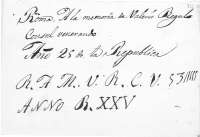 Roma. A la memoria de Valerio Regulo
Consul venerando
Año 25 de la Republica
R. A. M. V. R. C. V.
ANNO R. XXV